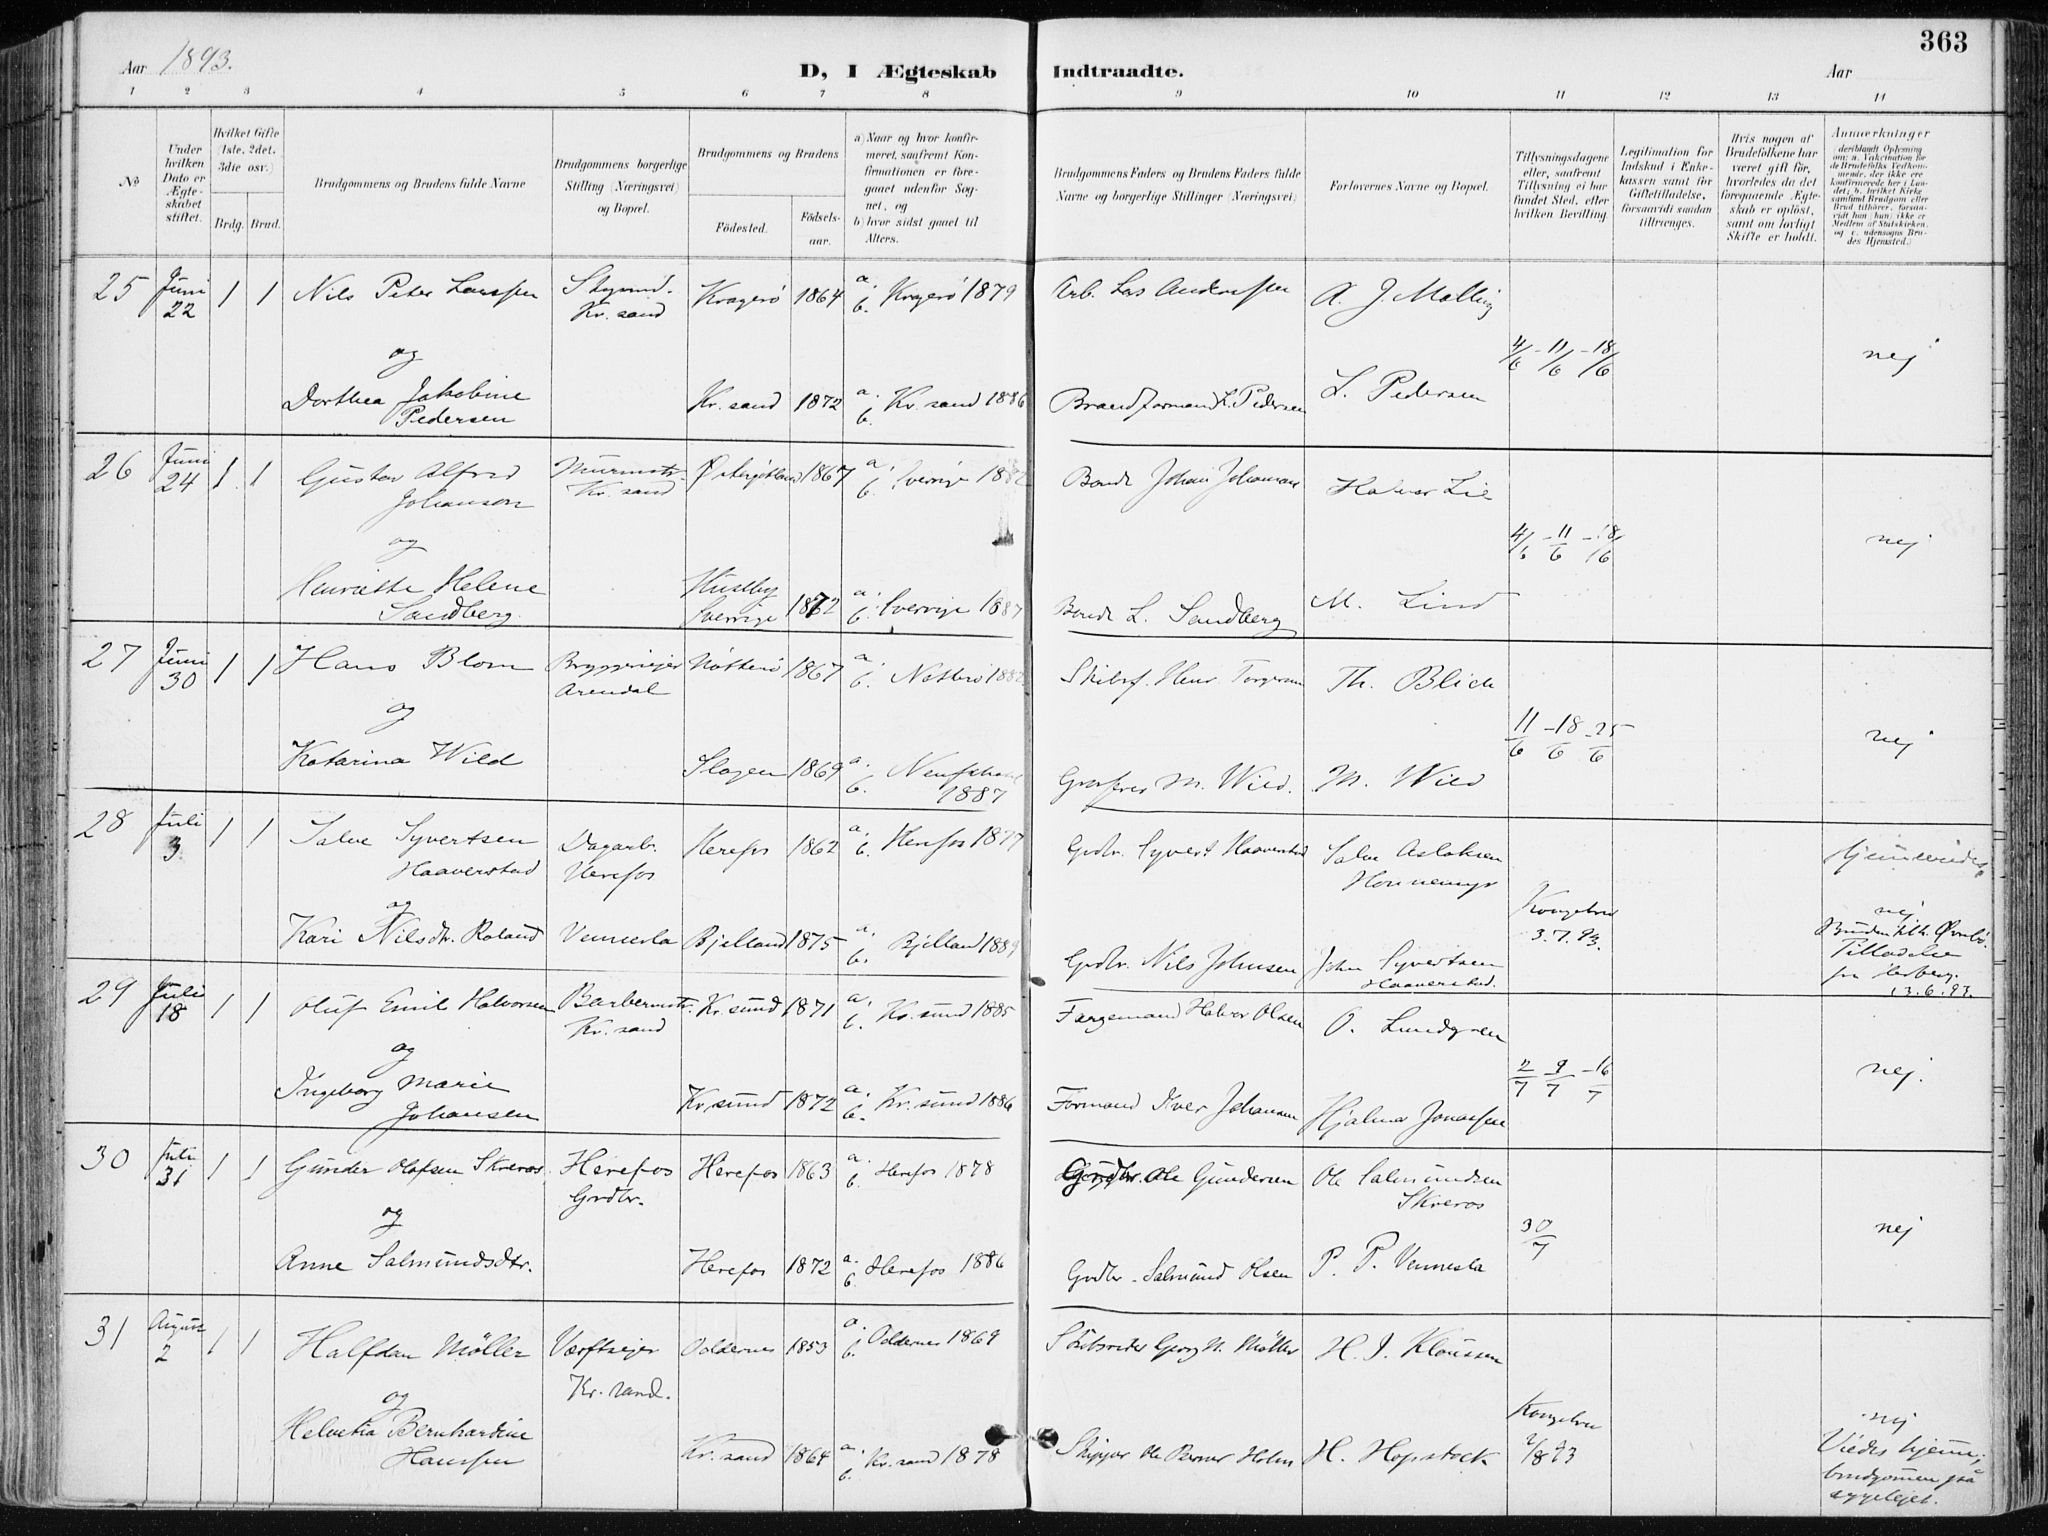 363
Aar 1893.
D, I Ægteskab Indtraadte.
Aar
1 2 3 3 4 5 6 7 8 9 10 11 12 13 14
No
Under hvilken Dato er Ægteskabet stiftet.
Hvilket Gifte (1ste, 2det, 3die osv.)
Brdg. Brud.
Brudgommens og Brudens fulde Navne
Brudgommens borgerlige Stilling (Næringsvei) og Bopæl.
Brudgommens og Brudens
Födested.
Födselsaar.
a) Naar og hvor konfirmeret, saafremt Konfirmationen er foregaaet udenfor Sognet, og
b) hvor sidst gaaet til Alters.
Brudgommens Faders og Brudens Faders fulde Navne og borgerlige Stillinger (Næringsvei)
Forlovernes Navne og Bopæl.
Tillysningsdagene eller, saafremt Tillysning ei har fundet Sted, efter hvilken Bevilling.
Legitimation for Indskud i Enkekassen samt for Giftetilladelse, forsaavidt saadan tiltrænges.
Hvis nogen af Brudefolkene har været gift för, hvorledes da det foregaaende Ægteskab er oplöst, samt om lovligt Skifte er holdt.
Anmærkninger (deriblandt Oplysning om: a. Vakcination for de Brudefolks Vedkommende, der ikke ere konfirmerede her i Landet; b. hvilket Kirkesamfund Brudgom eller Brud tilhörer, forsaavidt han (hun) ikke er Medlem af Statskirken, og c. udensogns Brudes Hjemsted.)
25 Juni 22 1 1 Nils Peter Larssen Kr. sand Kragerö 1864 a. b. Kragerö 1879 Arb. Lars Anderssen A. J. Malling
4/6 - 11/6 - 18/6 nej
og
Dorthea Jakobine Pedersen Kr. sand 1872 a. b. Kr. sand 1886 Brandformand L. Pedersen L. Pedersen
26 Juni 24 1 1 Gustav Alfred Johanson Murmstr. Kr. sand Østergötland 1867 a. b. Sverrige 1882 Bonde Johan Johanson Halvor Lie
4/6 - 11/6 - 18/6 nej
og
Henriette Helene Sandberg Sverrige 1872 a. b. Sverrige 1887 Bonde L. Sandberg M. Lind
27 Juni 30 1 1 Hans Blom Bryggerieier Arendal Nötterö 1867 a. b. Nötterö 1882 Th. Blich
11/6 - 18/6 - 25/6 nej
og
Katarina Wild Slagen 1869 a. b. 1887 M. Wild. M. Wild
28 Juli 3 1 1 Salve Syvertsen Haaverstad Dagarb. Herefos Herefos 1862 a. b. Herefos 1877 Grdbr. Syvert Haaverstad Salve Aslaksen Honnemyr
Kongebrev 3.7.93. nej
og
Kari Nilsdtr. Roland Vennesla Bjelland 1875 a. b. Bjelland 1889 Grdbr. Nils Johnsen John Syvertsen Haaverstad.
Tilladelse 13.6.93.
29 Juli 18 1 1 Oluf Emil Halvorsen Barbermstr. Kr. sand Kr. sund 1871 a. b. Kr. sund 1885 Færgemand Halvor Olsen O. Lundgren
2/7 - 9/7 - 16/7 nej.
og
Ingeborg Marie Johansen Kr. sund 1872 a. b. Kr. sund 1886 Formand Iver Johansen Hjalmar Jonassen
30 Juli 31 1 1 Gunder Olafsen Skreros Herefos Grdbr. Herefos 1863 a. b. Herefos 1878 Grdbr. Ole Gundersen Ole Salmundsen Skreros
30/7 nej
og
Anne Salmundsdtr. Herefos 1872 a. b. Herefos 1886 Grdbr. Salmund Olsen P. P. Vennesla
31 August 2 1 1 Halfdan Möller Værftseier Kr. sand. Oddernes 1853 a. b. Oddernes 1869 Skibsreder Georg N. Möller H. J. Klaussen
Kongebrev 2/8 93 nej
og
Helvetia Bernhardine Hanssen Kr. sand 1864 a. b. Kr. sand 1878 Skipper Ole Berner Holm H. Hopstock
Viedes hjemme; brudgommen paa sygeleiet.